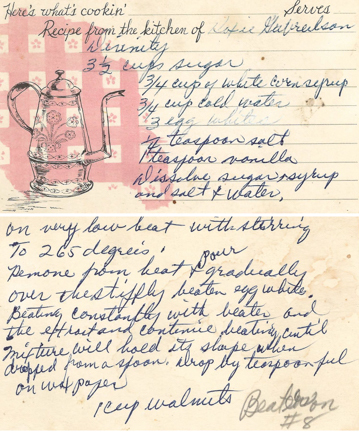 Here's what's cookin' Serves
Recipe from the kitchen of Roxie Gulbrailson
Divinity
3 1/2 cups sugar
3/4 cup of white corn syrup
3/4 cup cold water
3 egg whites
teaspoon salt
1 teaspoon vanilla
Dissolve sugar & syrup
and salt & water,
on very low heat with stirring
To 265 degreis.
Remone from heat & pour gradually
over the stiffly beaten egg white.
Beating constantly with beater and
the extract and continue beating, until
mixture will hold its shape when
dropped from a spoon. drop by teaspoonful
on wax paper
1 cup walmuts
#8